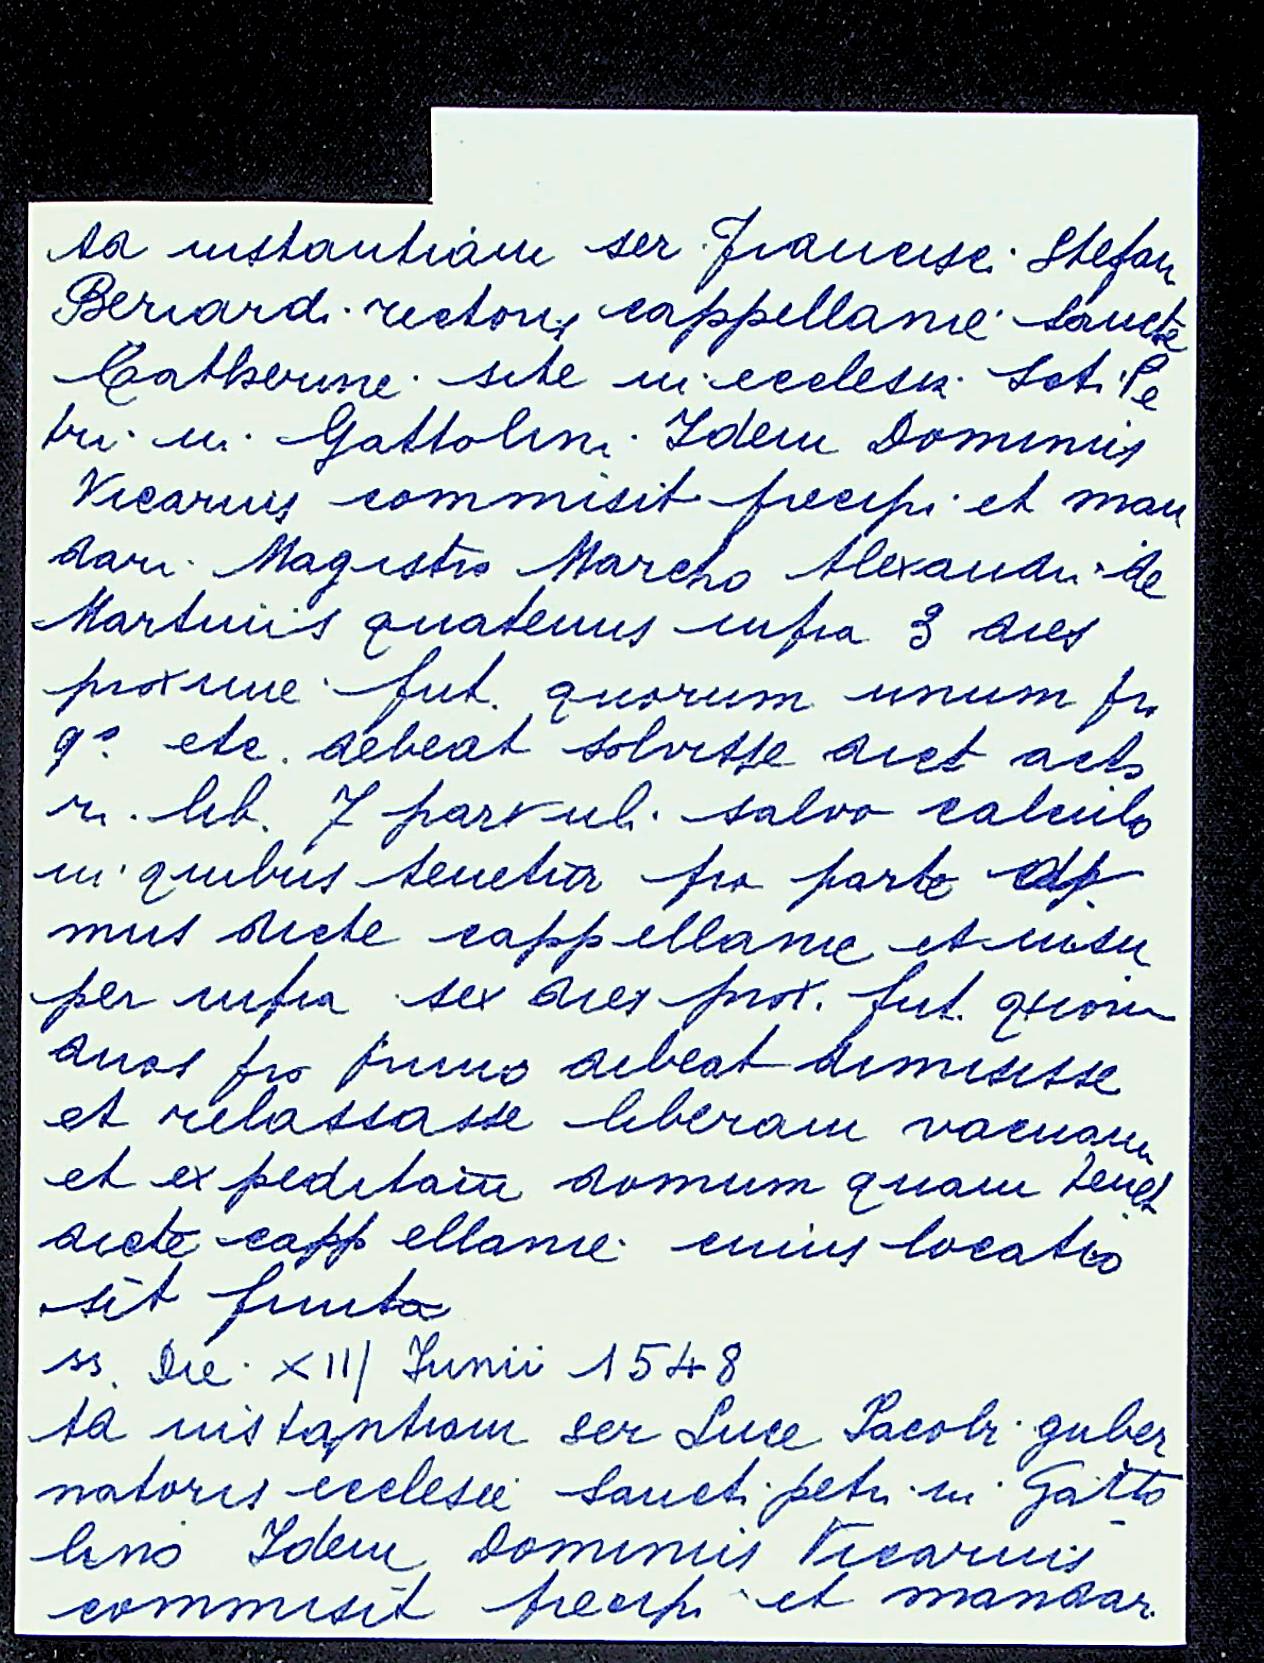 Ad instantiam ser Francisci Stefan
Bernardi rectoris cappellanie Sancte
Catherine site in ecclesia Scti Pe
tri in Gattolini. Idem Dominus
Vicarius commisit precipi et man
dari Magistro Marcho Alexandri de
Martinis quatenus infra 3 dies
proxime fut. quorum unum pro
qo. etc. debeat solvisse dict acto
ri. lib. 7 parvuli salvo calculo
in quibus tenetur pro parte
mus dicte cappellanie et insu
per infra sex dies prox. fut. quorum
duos pro primo debeat dimisisse
et relassasse liberam vacuam
et expeditam domum quam tenet
dicte cappellanie cuius locatio
sit finita
ss. Die XIII Junii 1548
Ad instantiam ser Luce Pacobi guber
natoris ecclesie Sancti petri in Gatto
lino Idem Dominus Vicarius
commisit precipi et mandar